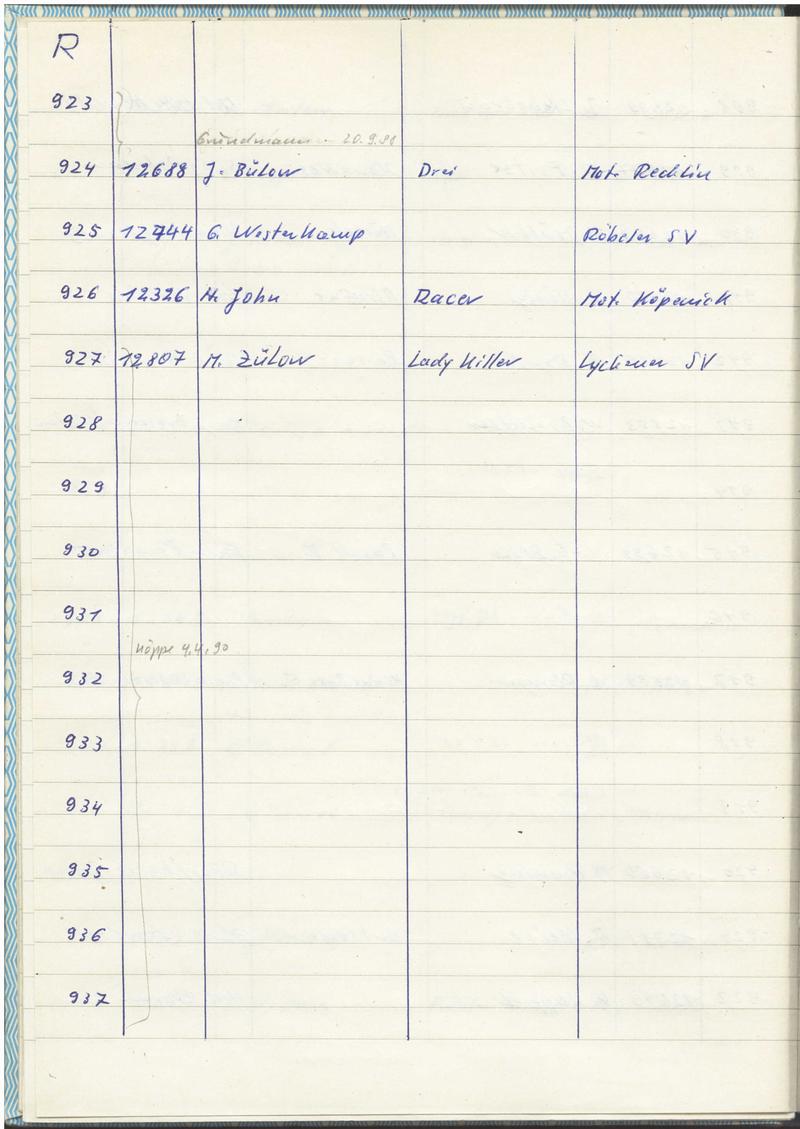 R
923
Grundmann - 20.9.88
924 12688 J. Bülow Drei Mot. Rechlin
925 12744 G. Westerkamp Röbeler SV
926 12326 H. John Racer Mot. Köpenick
927 12807 M. Zülow Lady Killer Lychener SV
928
929
930
931
Höppe 4.4.90
932
933
934
935
936
937